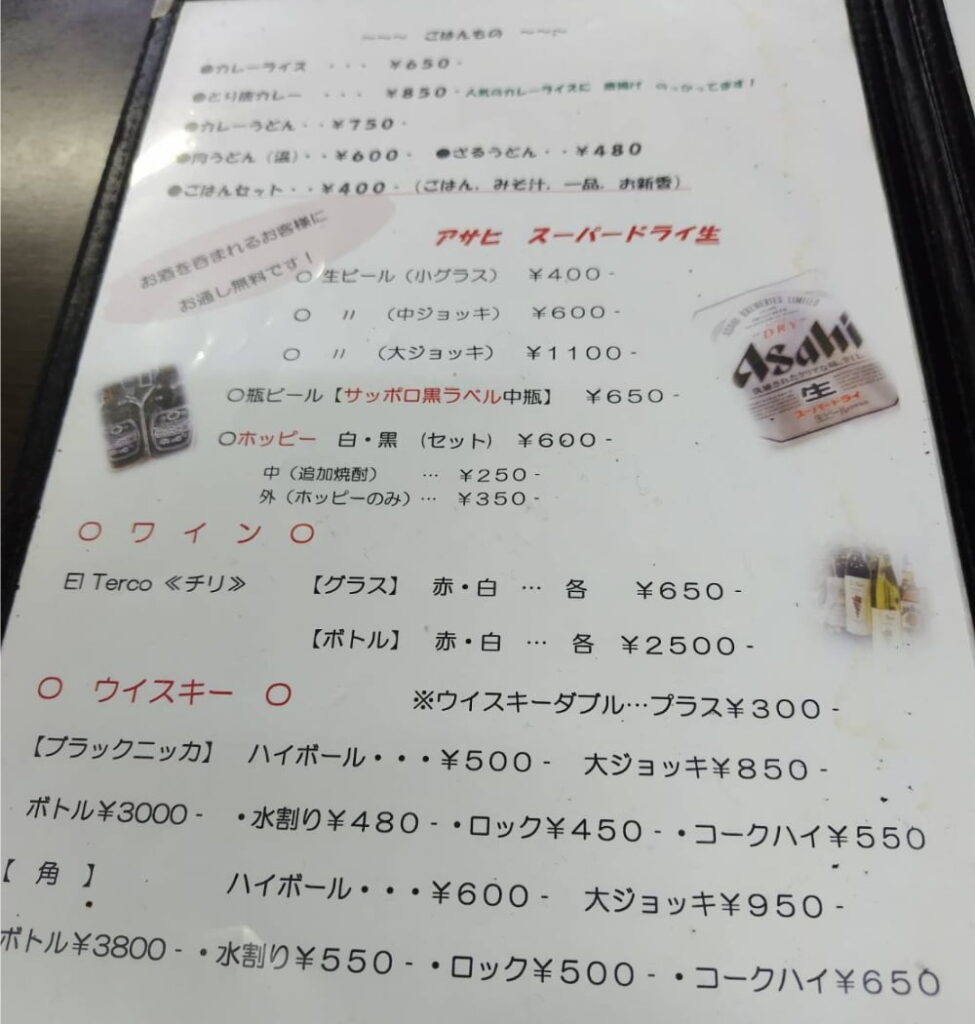 ～～～ ごはんもの ～～～
●カレーライス ・・・ ￥650-
●とり唐カレー ・・・ ￥850-人気のカレーライスに 唐揚げ のっかってます！
●カレーうどん・・￥750-
●肉うどん（温）・・￥600- ●ざるうどん・・￥480
●ごはんセット・・￥400-（ごはん、みそ汁、一品、お新香）
お酒を呑まれるお客様に
お通し無料です！
アサヒ スーパードライ生
〇 生ビール（小グラス） ￥400-
〇 〃 （中ジョッキ） ￥600-
〇 〃 （大ジョッキ） ￥1100-
〇瓶ビール【サッポロ黒ラベル中瓶】 ￥650-
〇ホッピー 白・黒 （セット） ￥600-
中（追加焼酎） … ￥250-
外（ホッピーのみ）… ￥350-
ASAHI BREWERIES LIMITED
DRY
Asahi
洗練されたクリアな味、辛口。
生
スーパードライ
〇 ワ イ ン 〇
El Terco ≪チリ≫ 【グラス】 赤・白 … 各 ￥650-
【ボトル】 赤・白 … 各 ￥2500-
〇 ウイスキー 〇 ※ウイスキーダブル…プラス￥300-
【ブラックニッカ】 ハイボール・・・￥500- 大ジョッキ￥850-
ボトル￥3000- ・水割り￥480-・ロック￥450-・コークハイ￥550
【 角 】 ハイボール・・・￥600- 大ジョッキ￥950-
ボトル￥3800-・水割り￥550-・ロック￥500-・コークハイ￥650